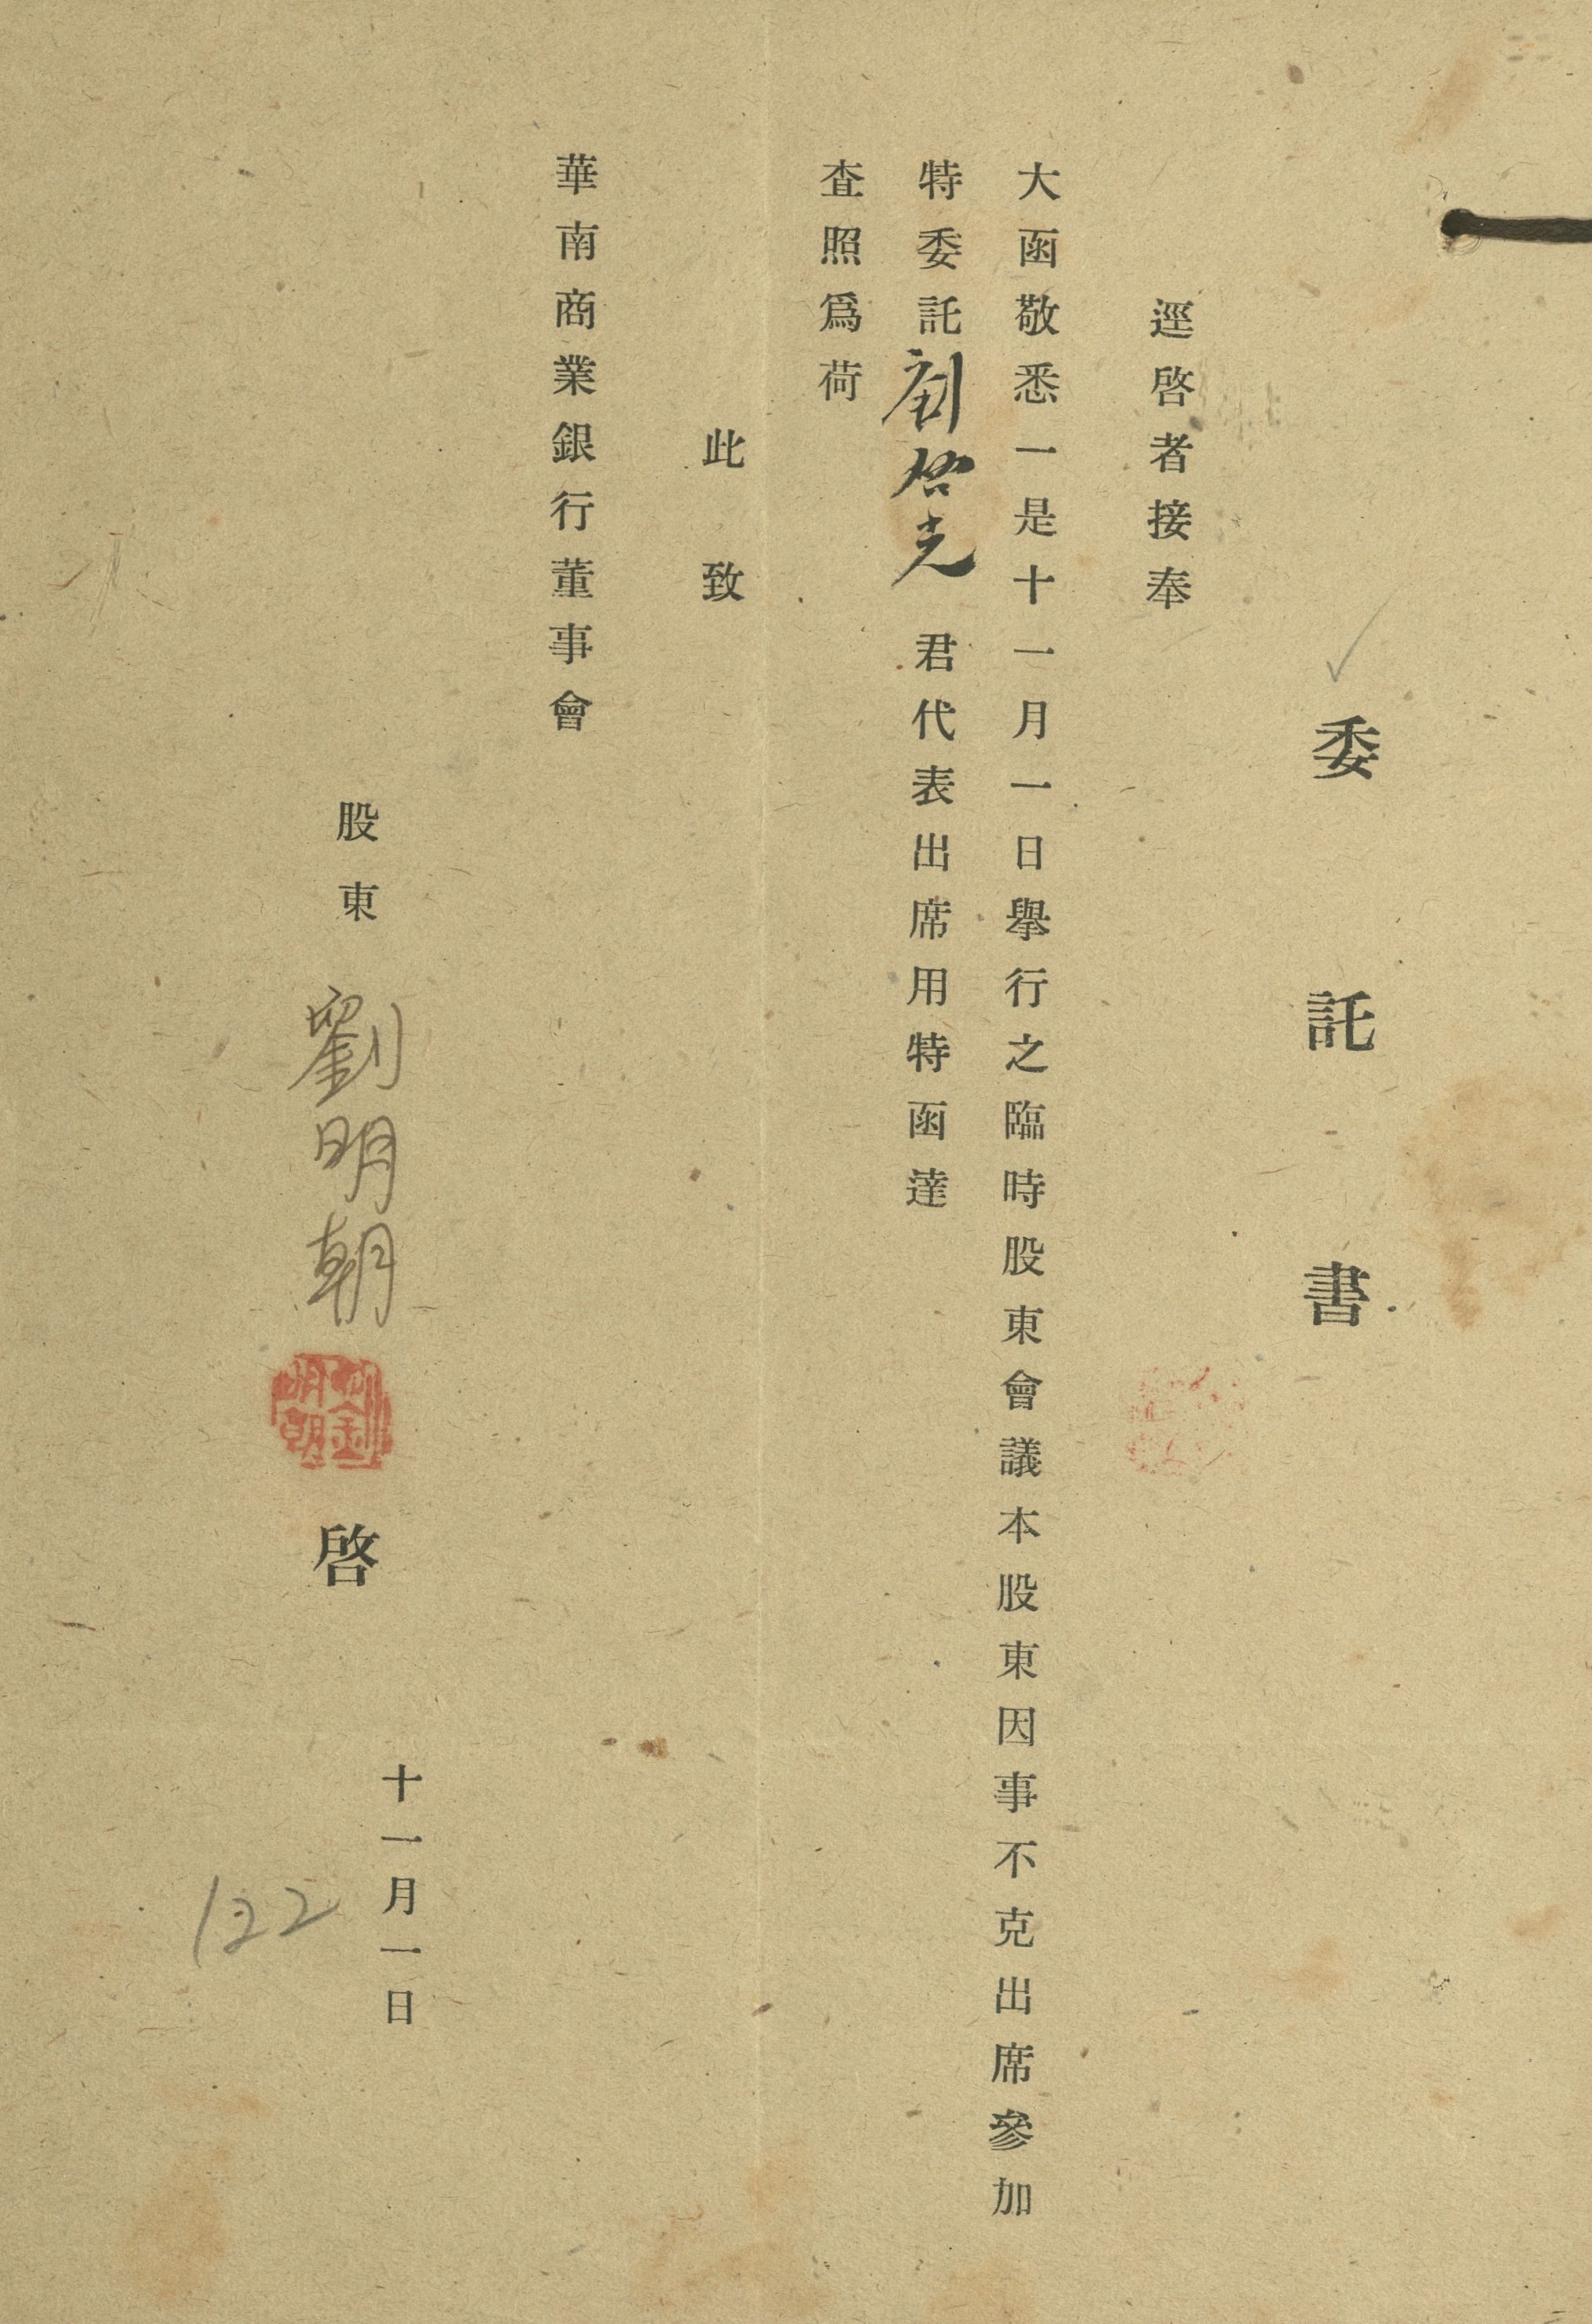 委託書
逕啓者接奉
大函敬悉一是十一月一日舉行之臨時股東會議本股東因事不克出席參加
特委託劉啓光君代表出席用特函達
査照爲荷
此致
華南商業銀行董事會
股東劉明朝啓
劉明朝
十一月一日
122